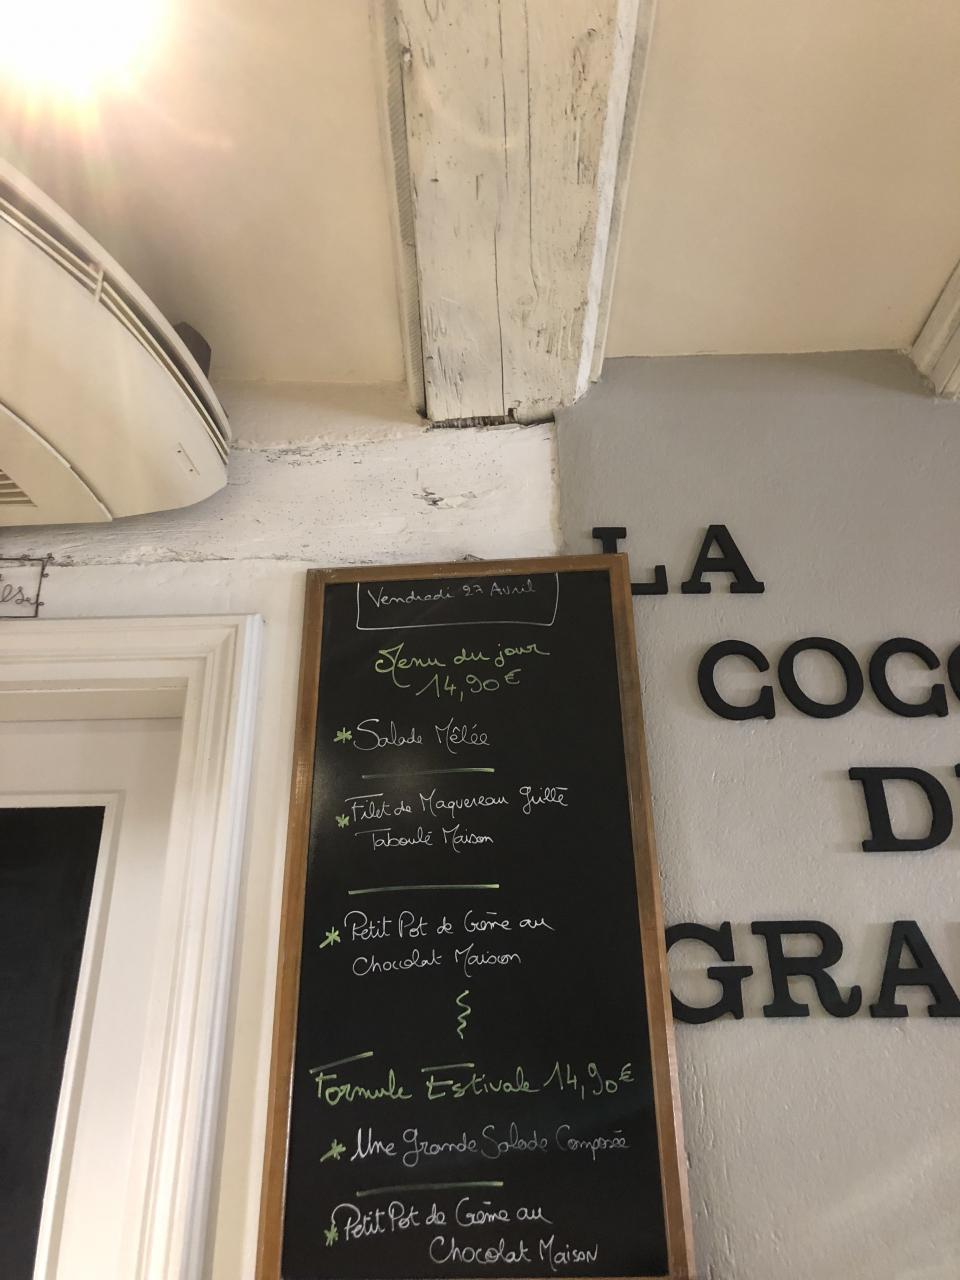 Vendredi 27 Avril
Menu du jour
14,90€
* Salade Mêlée
* Filet de Maquereau Grillé
Taboulé Maison
* Petit Pot de Crème au
Chocolat Maison
Formule Estivale 14,90€
* Une Grande Salade Composée
* Petit Pot de Crème au
Chocolat Maison
LA
COCO
D
GRA